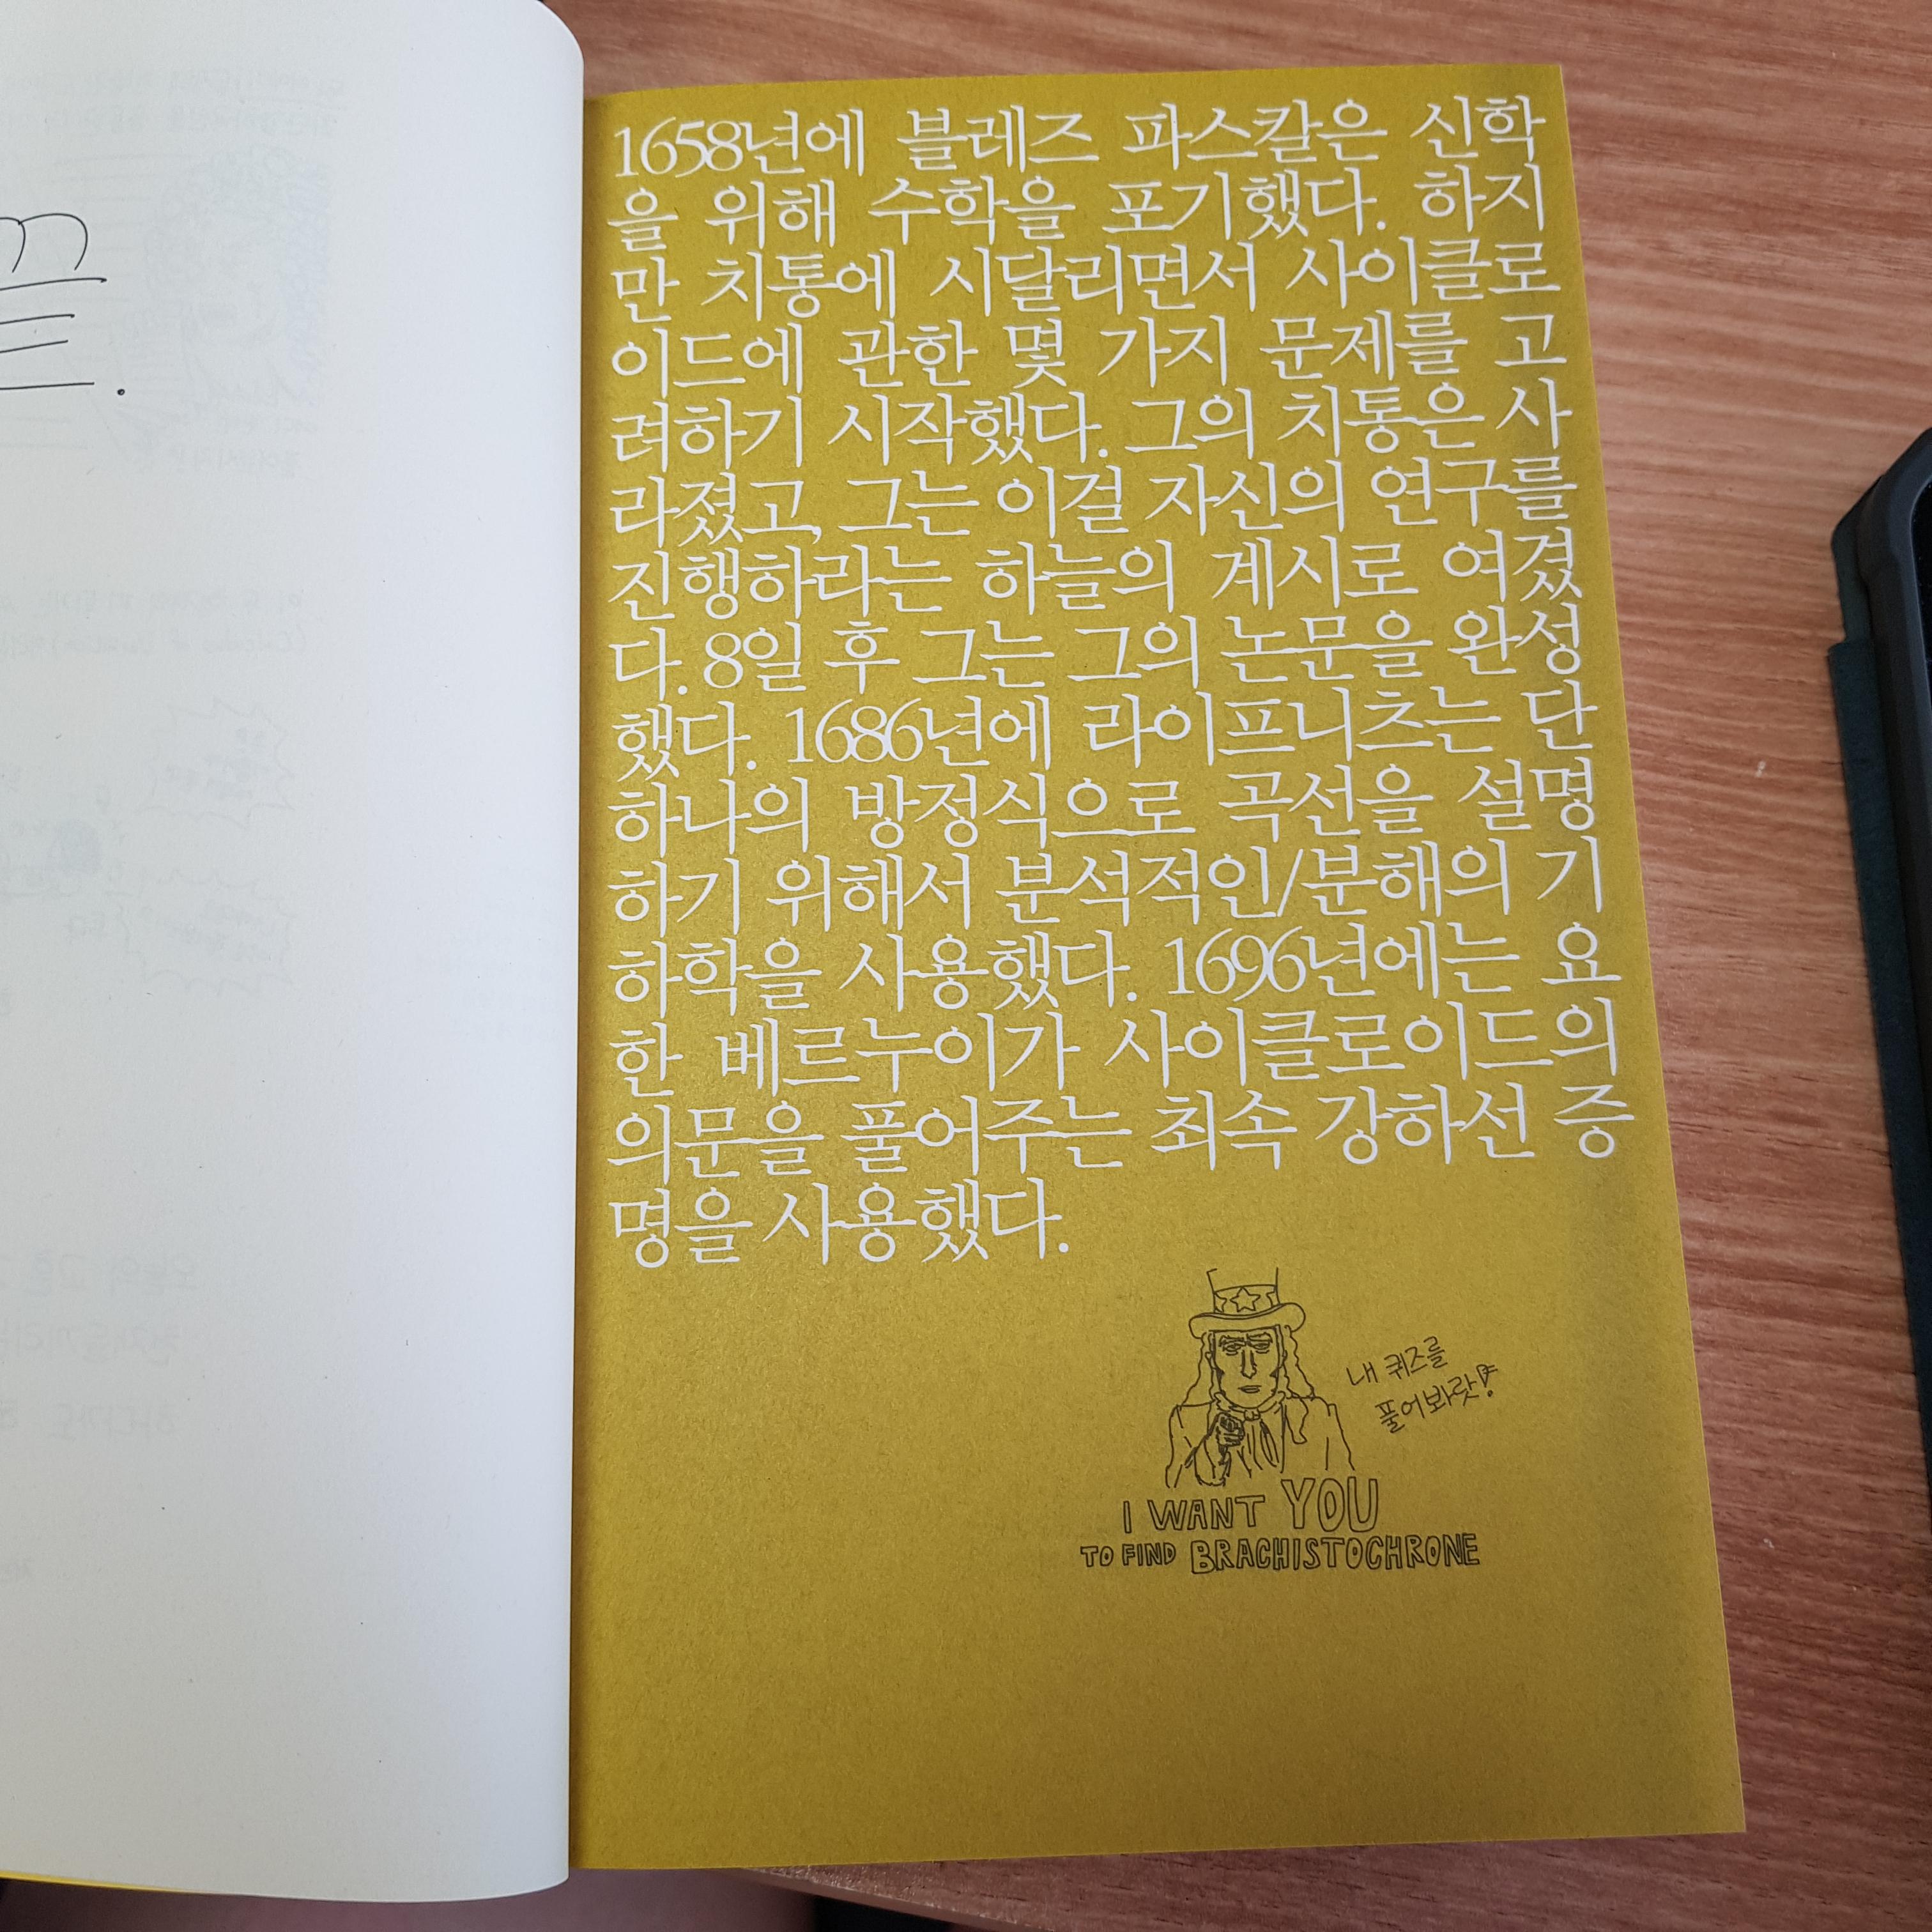 1658년에 블레즈 파스칼은 신학
을 위해 수학을 포기했다. 하지
만 치통에 시달리면서 사이클로
이드에 관한 몇 가지 문제를 고
려하기 시작했다. 그의 치통은 사
라졌고, 그는 이걸 자신의 연구를
진행하라는 하늘의 계시로 여겼
다. 8일 후 그는 그의 논문을 완성
했다. 1686년에 라이프니츠는 단
하나의 방정식으로 곡선을 설명
하기 위해서 분석적인/분해의 기
하학을 사용했다. 1696년에는 요
한 베르누이가 사이클로이드의
의문을 풀어주는 최속 강하선 증
명을 사용했다.
내 퀴즈를
풀어봐랏!
I WANT YOU
TO FIND BRACHISTOCHRONE